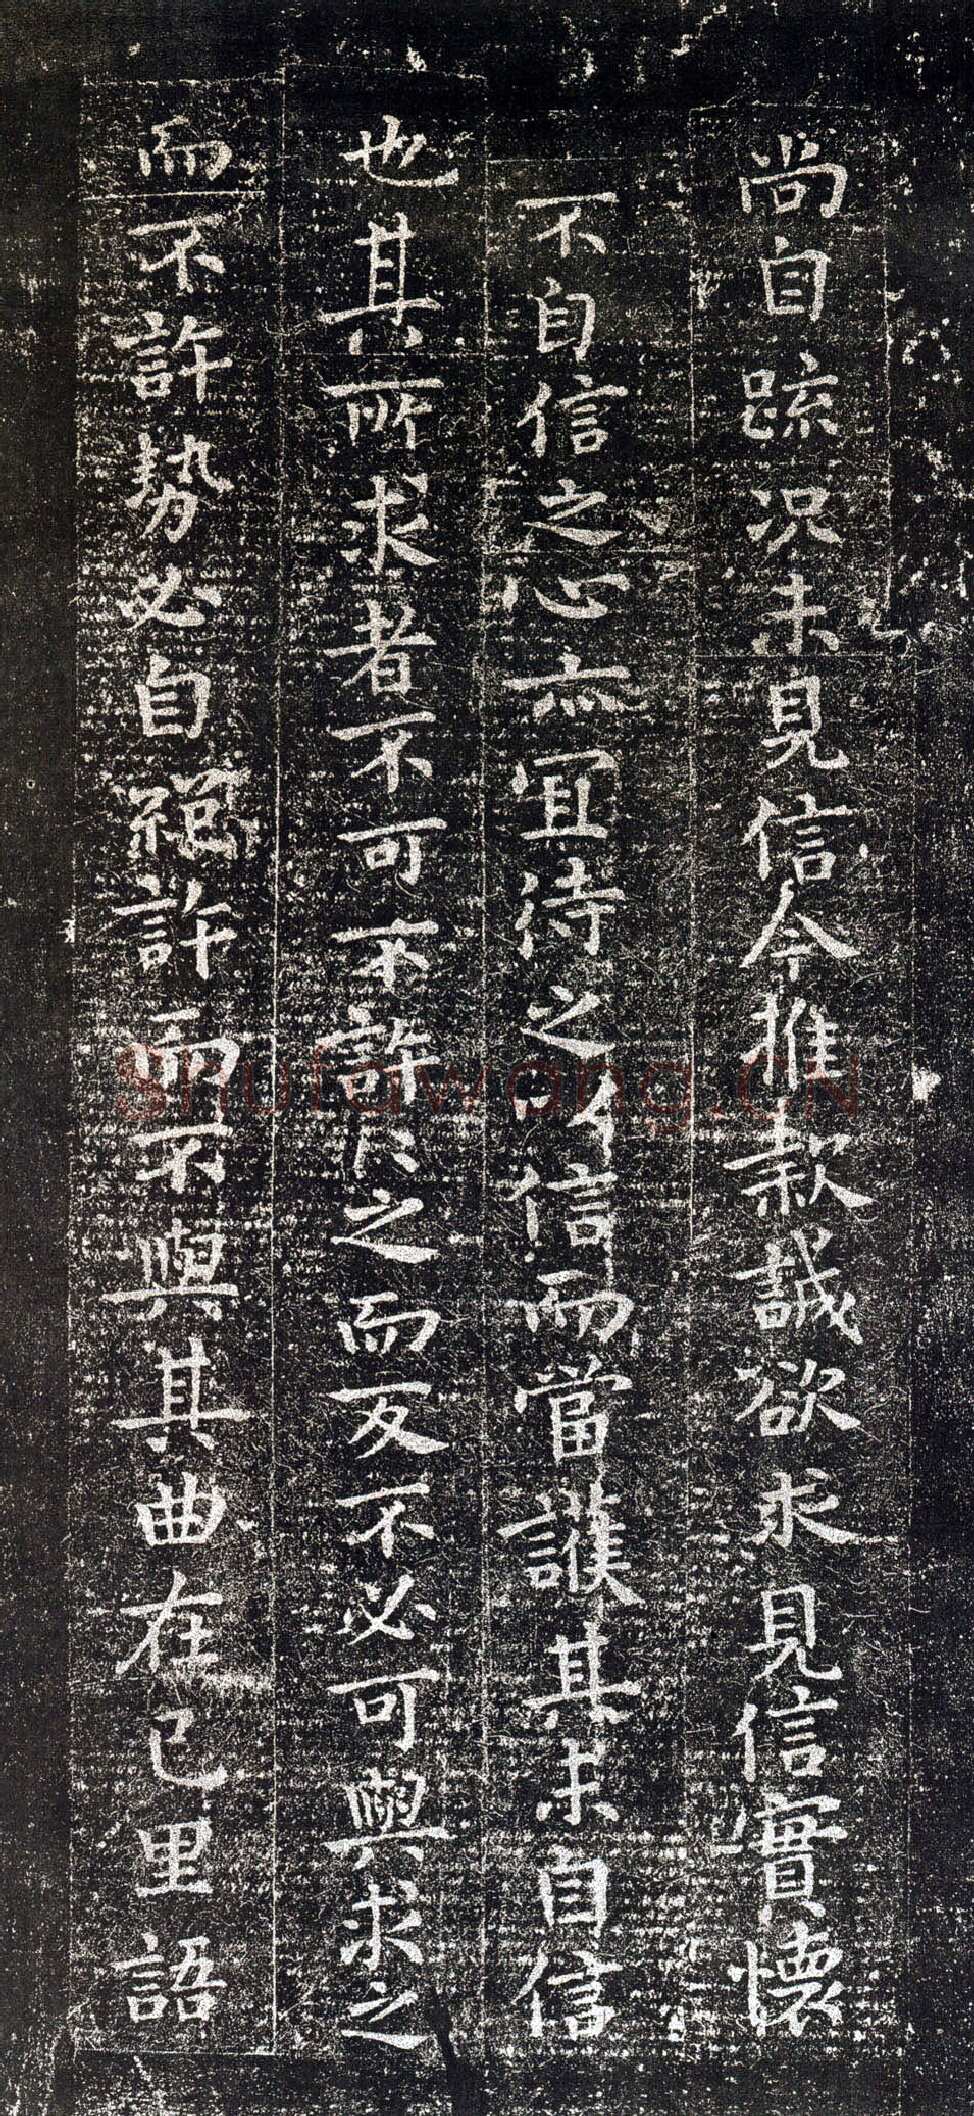 尚自疏況未見信今推款誠欲求見信實懷
不自信之心亦宜待之以信而當護其未自信
也其所求者不可不許許之而反不必可與求之
而不許勢必自絕許而不與其曲在己里語
shufawang.CN